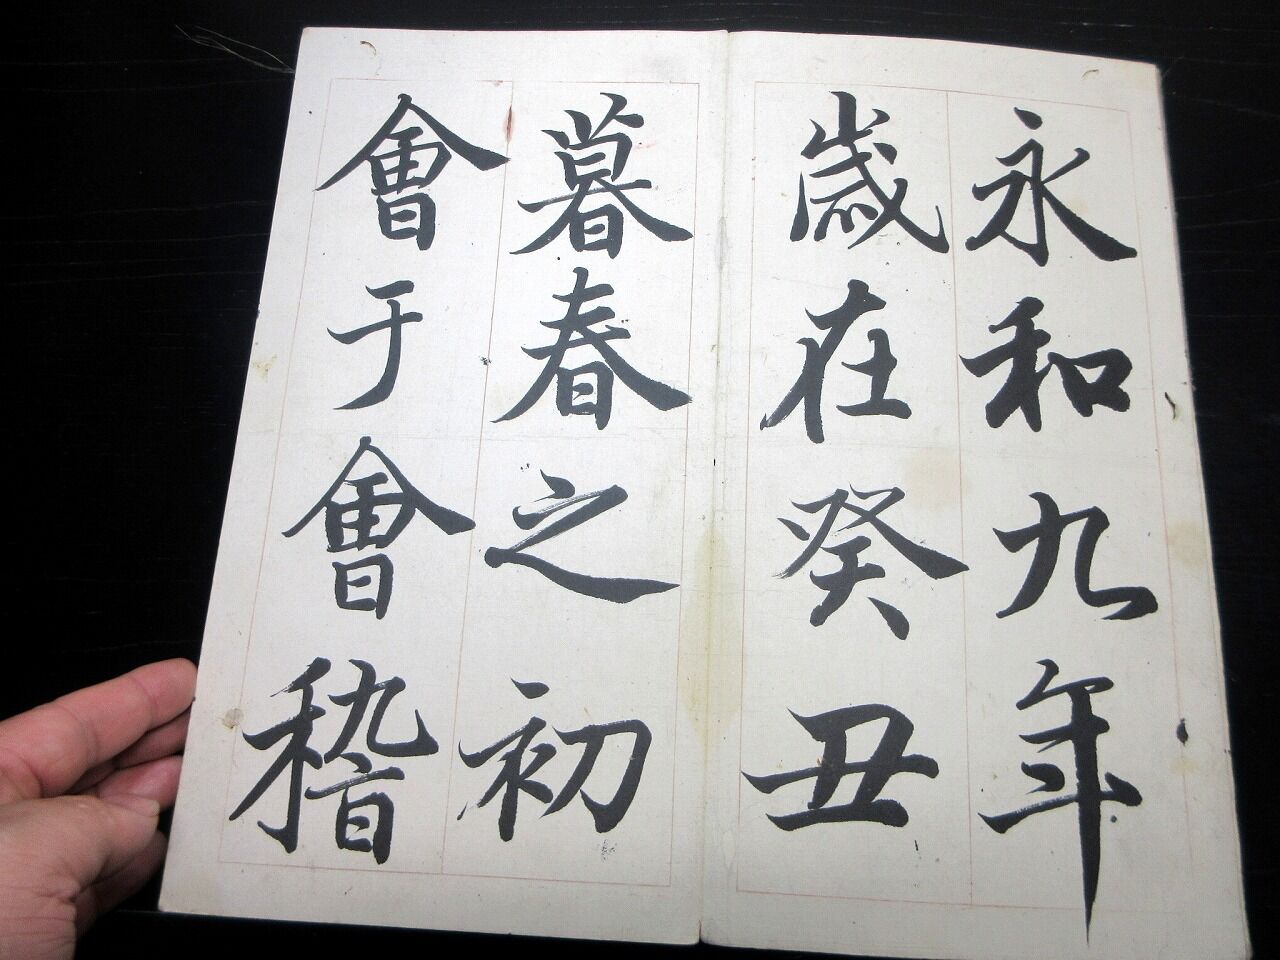 永和九年
歳在癸丑
暮春之初
會于會稽